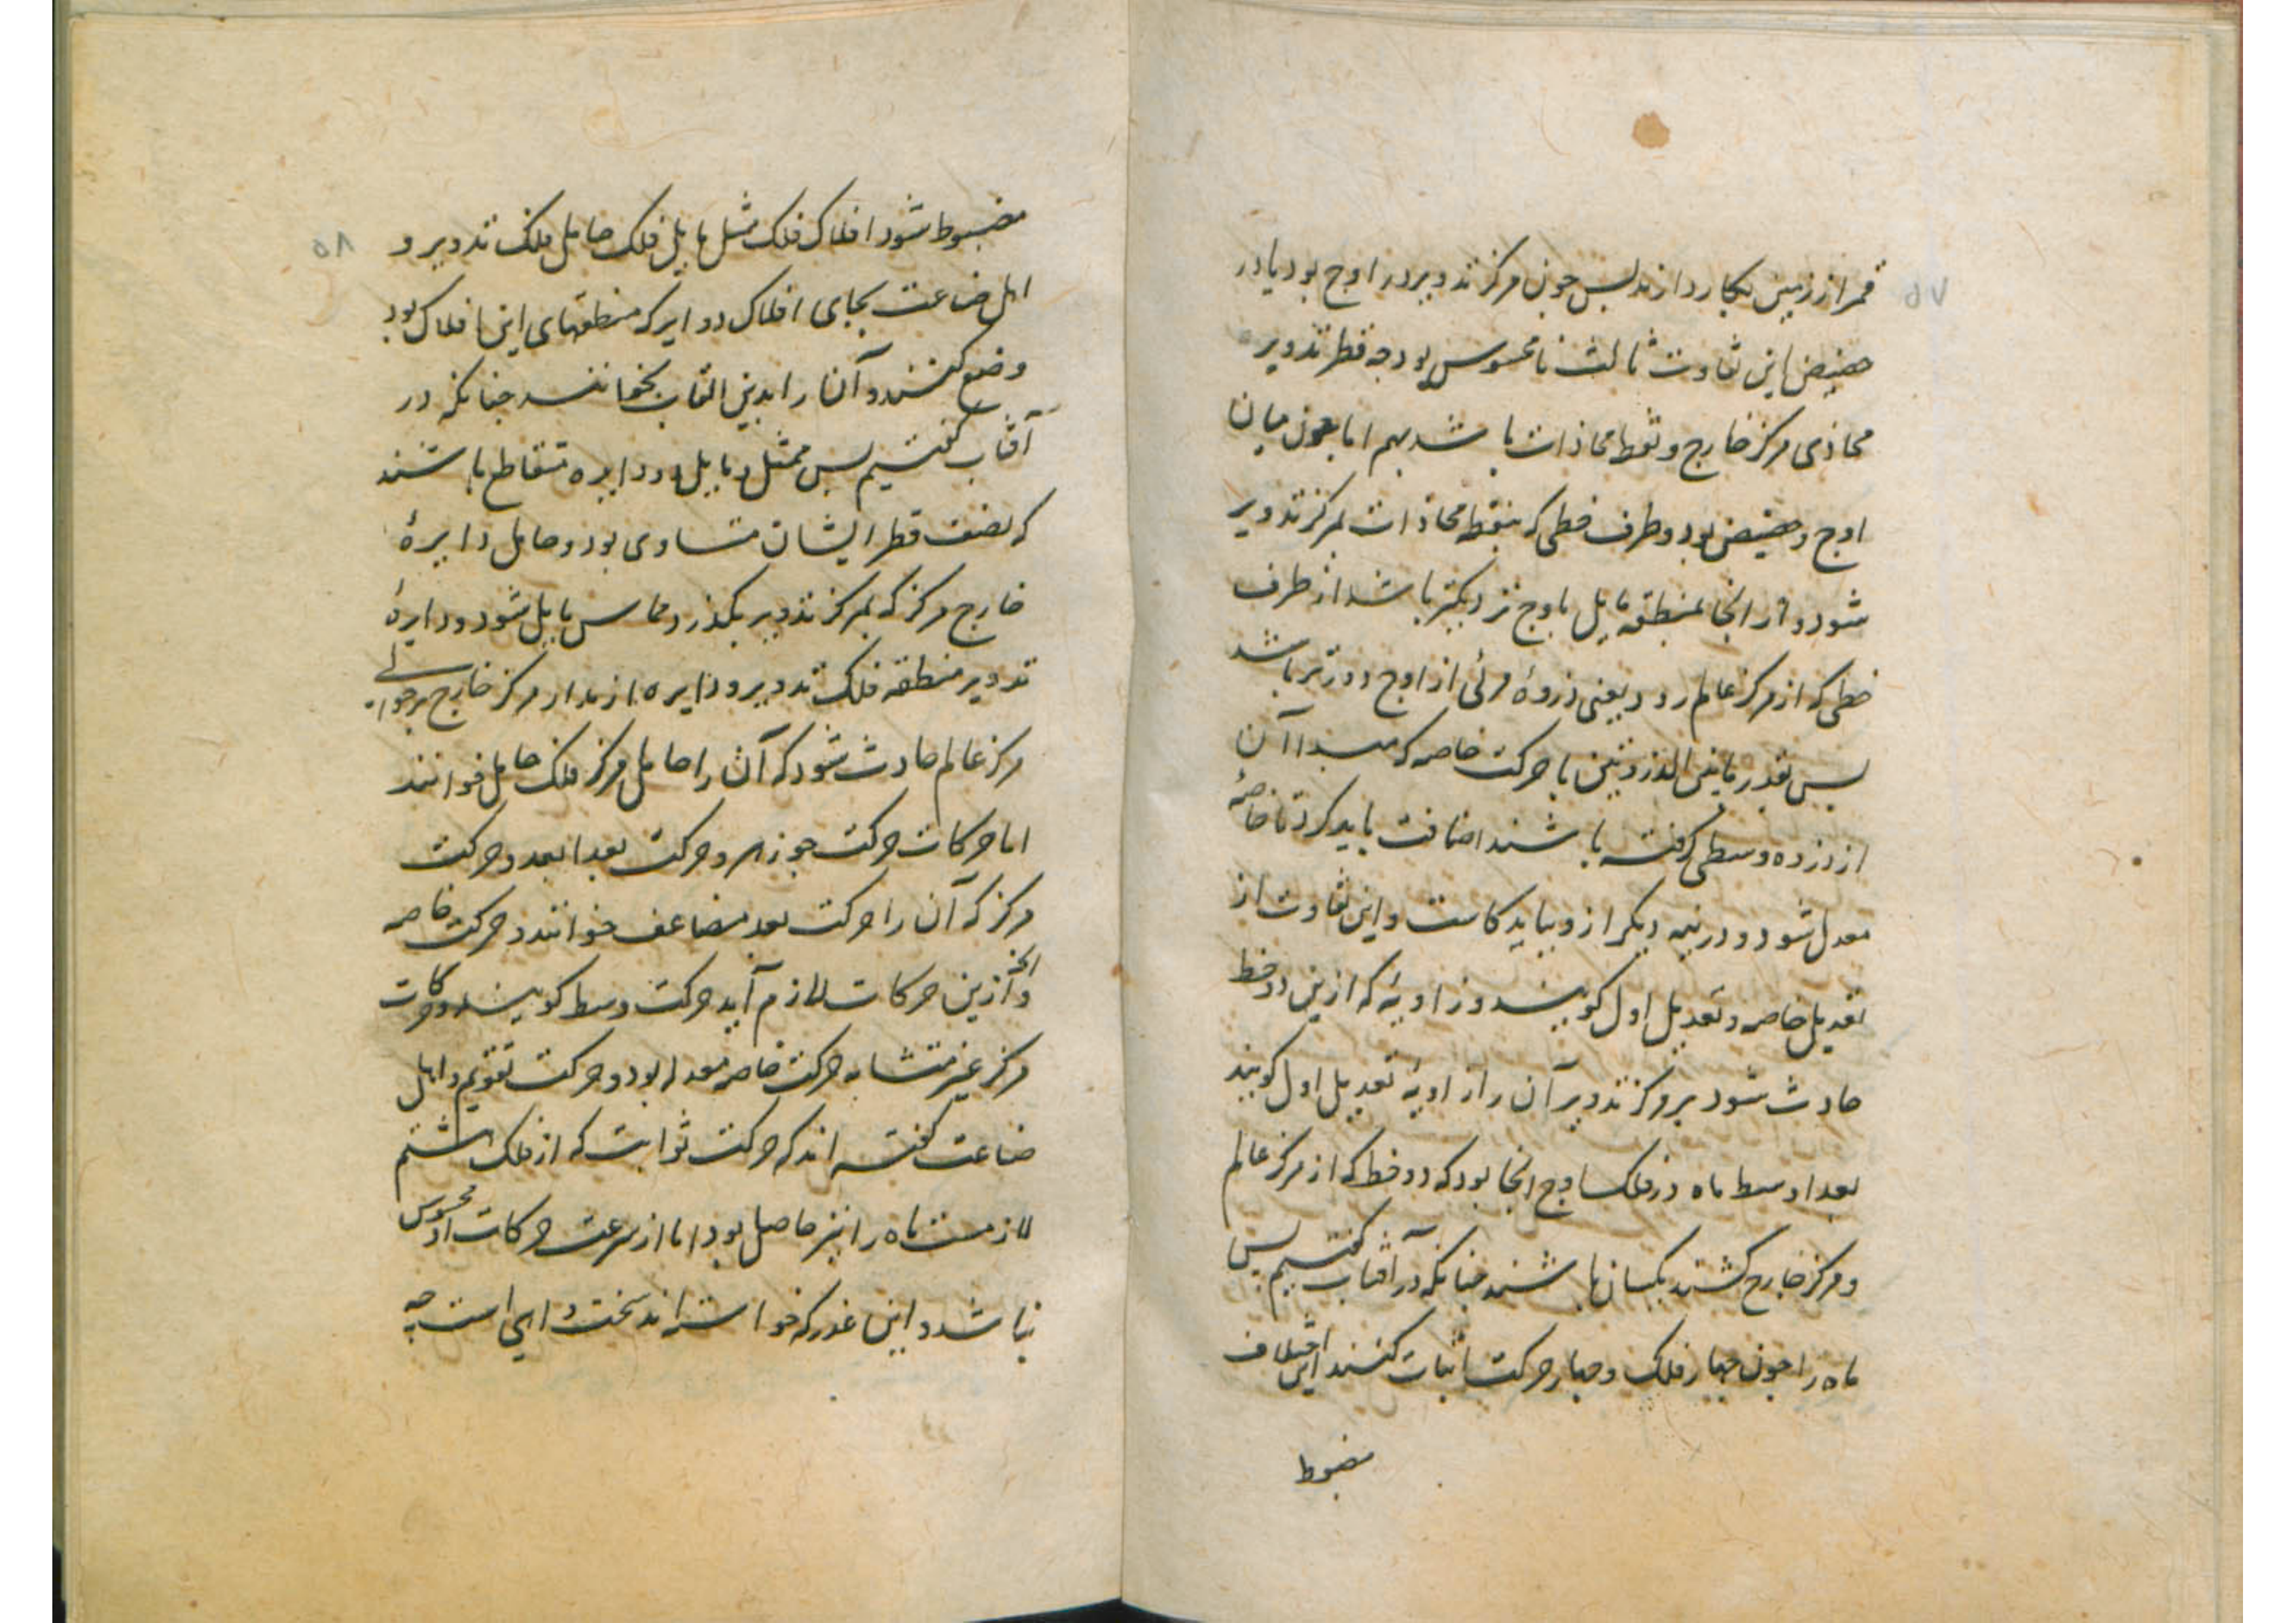 ۵۷
قمر از زمین بکار دارند پس چون مرکز تدویر در اوج بود یا در
حضیض این تفاوت ثالث نا محسوس بود چه قطر تدویر
محاذی مرکز خارج و نقطه محاذات باشد بهم اما چون میان
اوج و حضیض بود و طرف خطی که بنقطه محاذات بمرکز تدویر
شود و از انجا بمنطقه مایل باوج نزدیکتر باشد از طرف
خطی که از مرکز عالم رود یعنی ذروهٔ مرئی از اوج دورتر باشد
پس بقدر مابین الذروتین با حرکت خاصه که مبدا آن
از ذروه وسطی گرفته باشند اضافت باید کرد تا خاصهٔ
معدل شود و در نیمه دیگر ازو بباید کاست و این تفاوت از
تعدیل خاصه و تعدیل اول گویند و زاویهٔ که ازین دو خط
حادث شود بر مرکز تدویر آن را زاویهٔ تعدیل اول گویند
بعد اوسط ماه در فلک اوج انجا بود که دو خط که از مرکز عالم
و مرکز خارج کشند یکسان باشند چنانکه در آفتاب گفتیم پس
ماه را چون چهار فلک و چهار حرکت اثبات کنند این اختلاف
مضبوط
۵۸
مضبوط شود افلاک فلک ممثل مایل فلک حامل فلک تدویر و
اهل صناعت بجای افلاک دوایر که منطقهای این افلاک بود
وضع کنند و آن را بدین القاب بخوانند چنانکه در
آفتاب گفتیم پس ممثل و مایل دو دایره متقاطع باشند
که نصف قطر ایشان متساوی بود و حامل دایرهٔ
خارج مرکز که بمرکز تدویر بگذرد و مماس مایل شود و دایرهٔ
تدویر منطقه فلک تدویر و دایره از مدار مرکز خارج بر حوالی
مرکز عالم حادث شود که آن را حامل مرکز فلک حامل خوانند
اما حرکات حرکت جوزهر و حرکت بعد ابعد و حرکت
مرکز که آن را حرکت بعد مضاعف خوانند و حرکت خاصه
و انچه ازین حرکات لازم آید حرکت وسط گویند و حرکات
مرکز غیر متشابه حرکت خاصه معدله بود و حرکت تقویم و اهل
صناعت گفته اند که حرکت ثوابت که از فلک هشتم
لازمست ماه را نیز حاصل بود اما از سرعت حرکات او محسوس
نباشد و این عذر که خواسته اند سخت واهی است چه